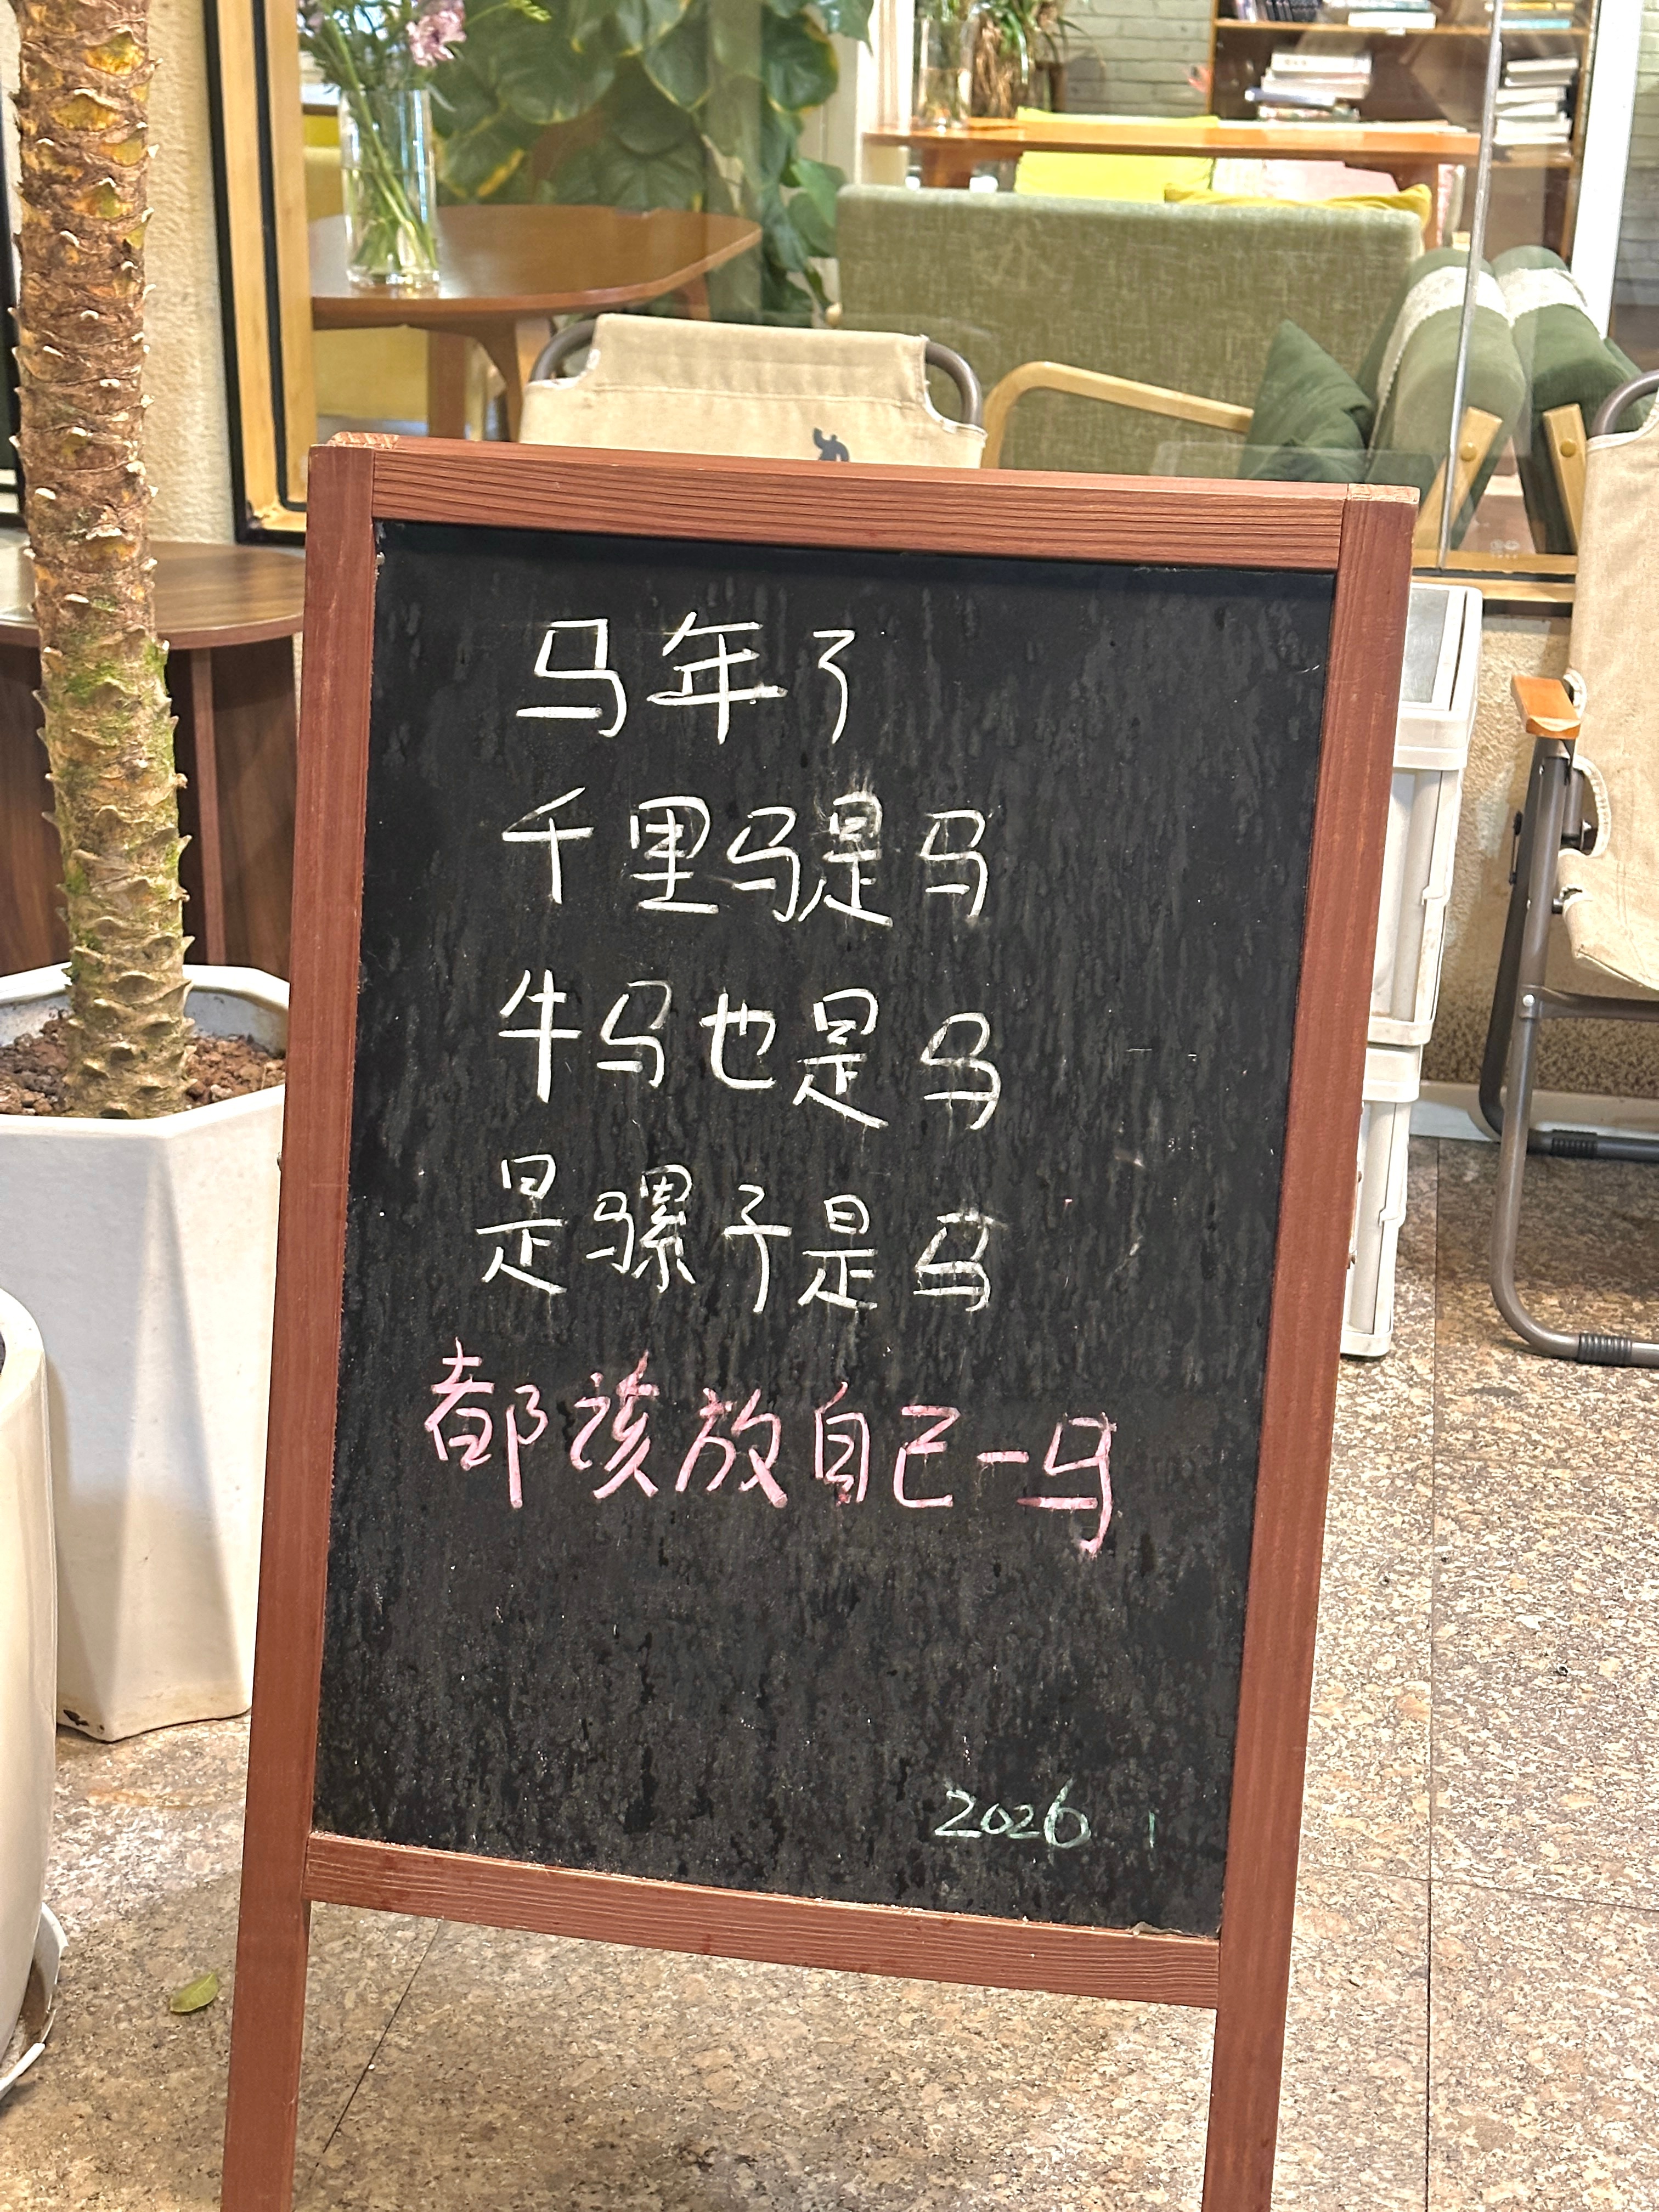 马年了
千里马是马
牛马也是马
是骡子是马
都该放自己一马
2026.1